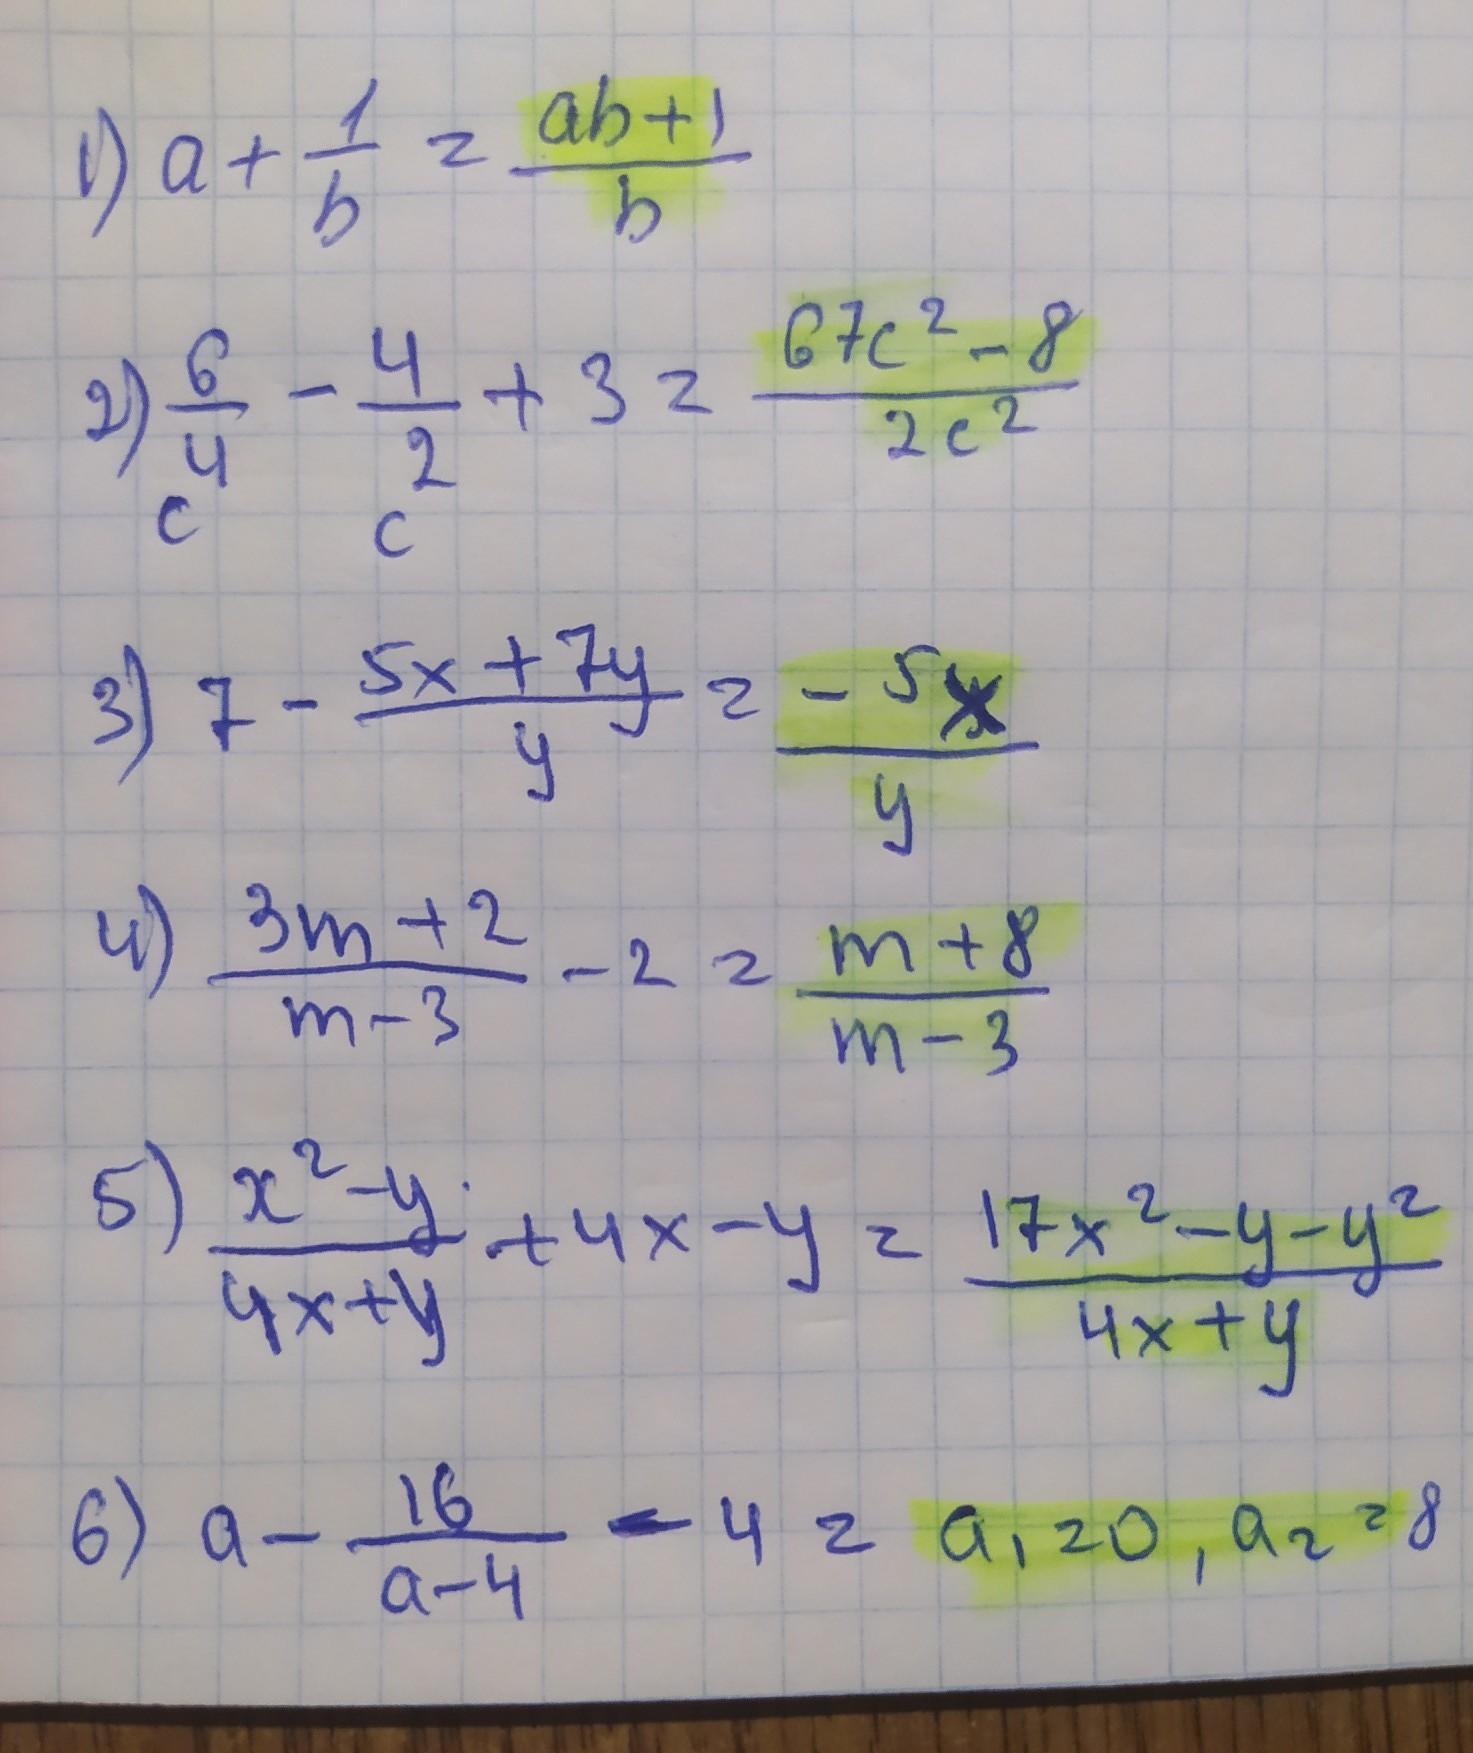 1) a + 1/b = (ab+1)/b
2) 6/c⁴ - 4/c² + 3 = (67c² - 8)/(2c²)
3) 7 - (5x + 7y)/y = (-5x)/y
4) (3m + 2)/(m - 3) - 2 = (m + 8)/(m - 3)
5) (x² - y)/(4x + y) + 4x - y = (17x² - y - y²)/(4x + y)
6) a - 16/(a - 4) - 4 = a₁ = 0, a₂ = 8